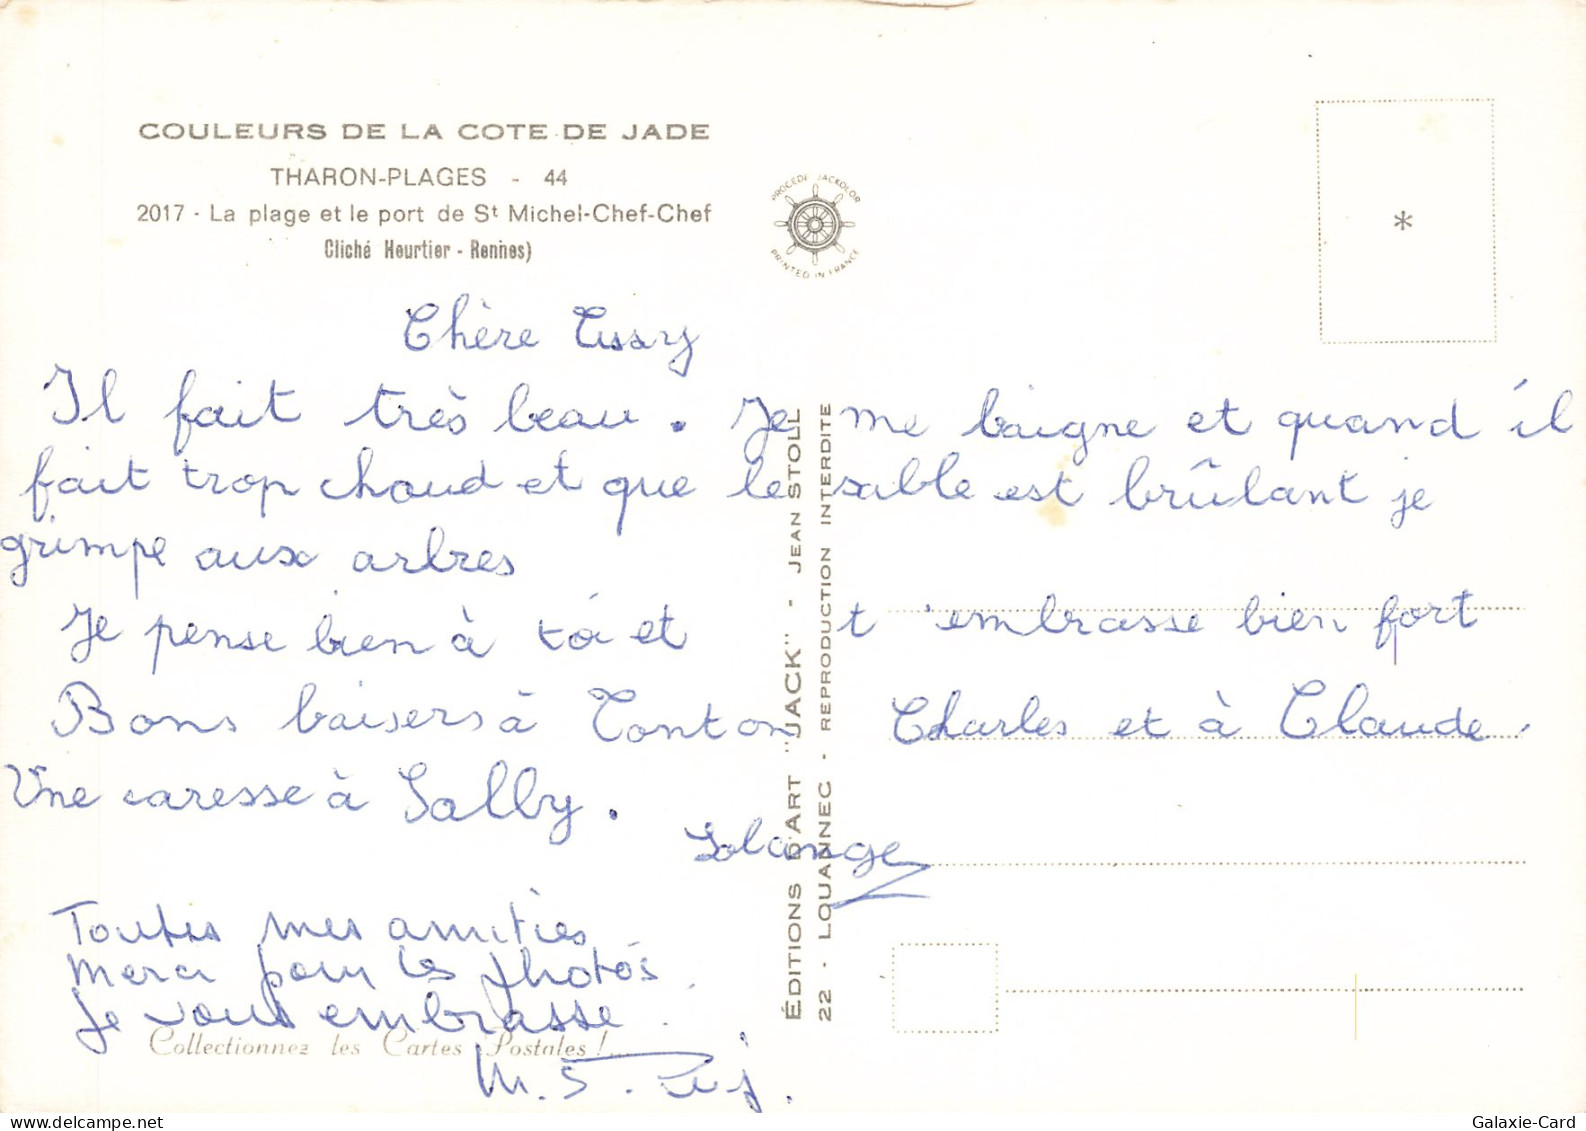 COULEURS DE LA COTE DE JADE
THARON-PLAGES - 44
2017 - La plage et le port de St Michel-Chef-Chef
Cliché Heurtier - Rennes)
PROCEDE JACKOLOR
PRINTED IN FRANCE
*
Chère
Il fait très beau. Je me baigne et quand il
fait trop chaud et que le sable est brûlant je
grimpe aux arbres
Je pense bien à toi et t'embrasse bien fort
Bons baisers à Tonton Charles et à Claude.
Une caresse à Sally.
Solange
Toutes mes amitiés
Merci pour les photos.
Je vous embrasse.
M. S.
Collectionnez les Cartes Postales !...
ÉDITIONS D'ART "JACK" - JEAN STOLL
22 - LOUANNEC - REPRODUCTION INTERDITE
Galaxie-Card